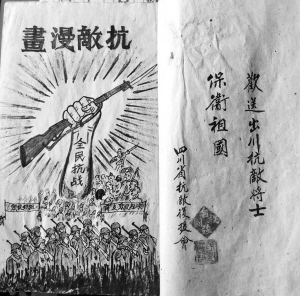 抗敵漫畫
全民抗战
歡送出川抗敵將士
保衛祖國
四川省抗敵後援會